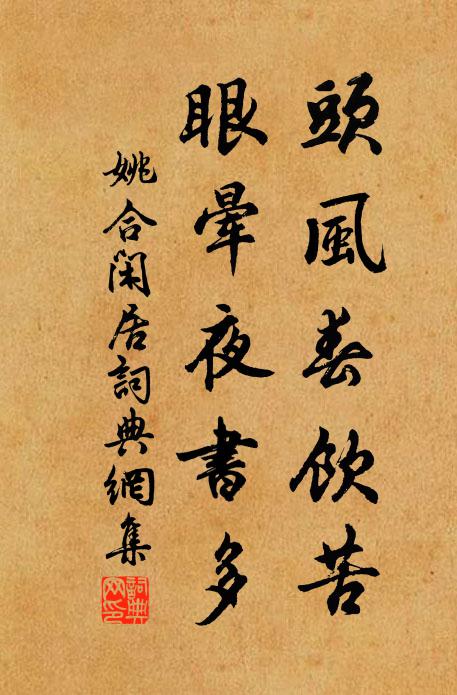 頭風春飲苦
眼暈夜書多
姚合閑居詞典網集
詞典
网印